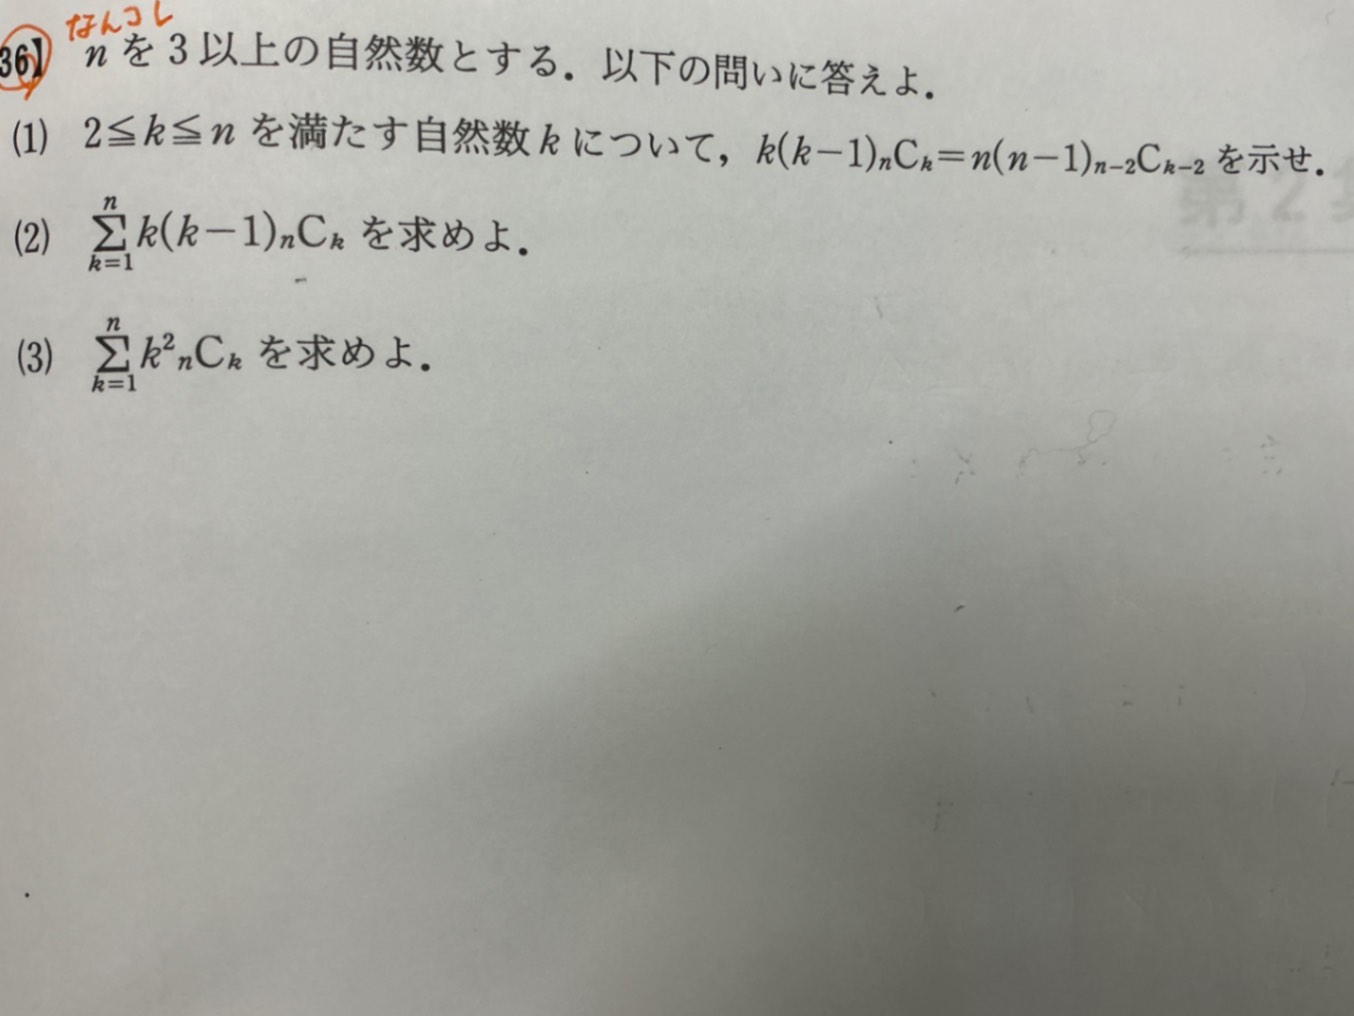 なんコレ
36】 nを3以上の自然数とする．以下の問いに答えよ．
(1) 2≦k≦n を満たす自然数 k について，k(k−1)ₙCₖ=n(n−1)ₙ₋₂Cₖ₋₂ を示せ．
(2) \sum_{k=1}^{n} k(k−1)ₙCₖ を求めよ．
(3) \sum_{k=1}^{n} k²ₙCₖ を求めよ．